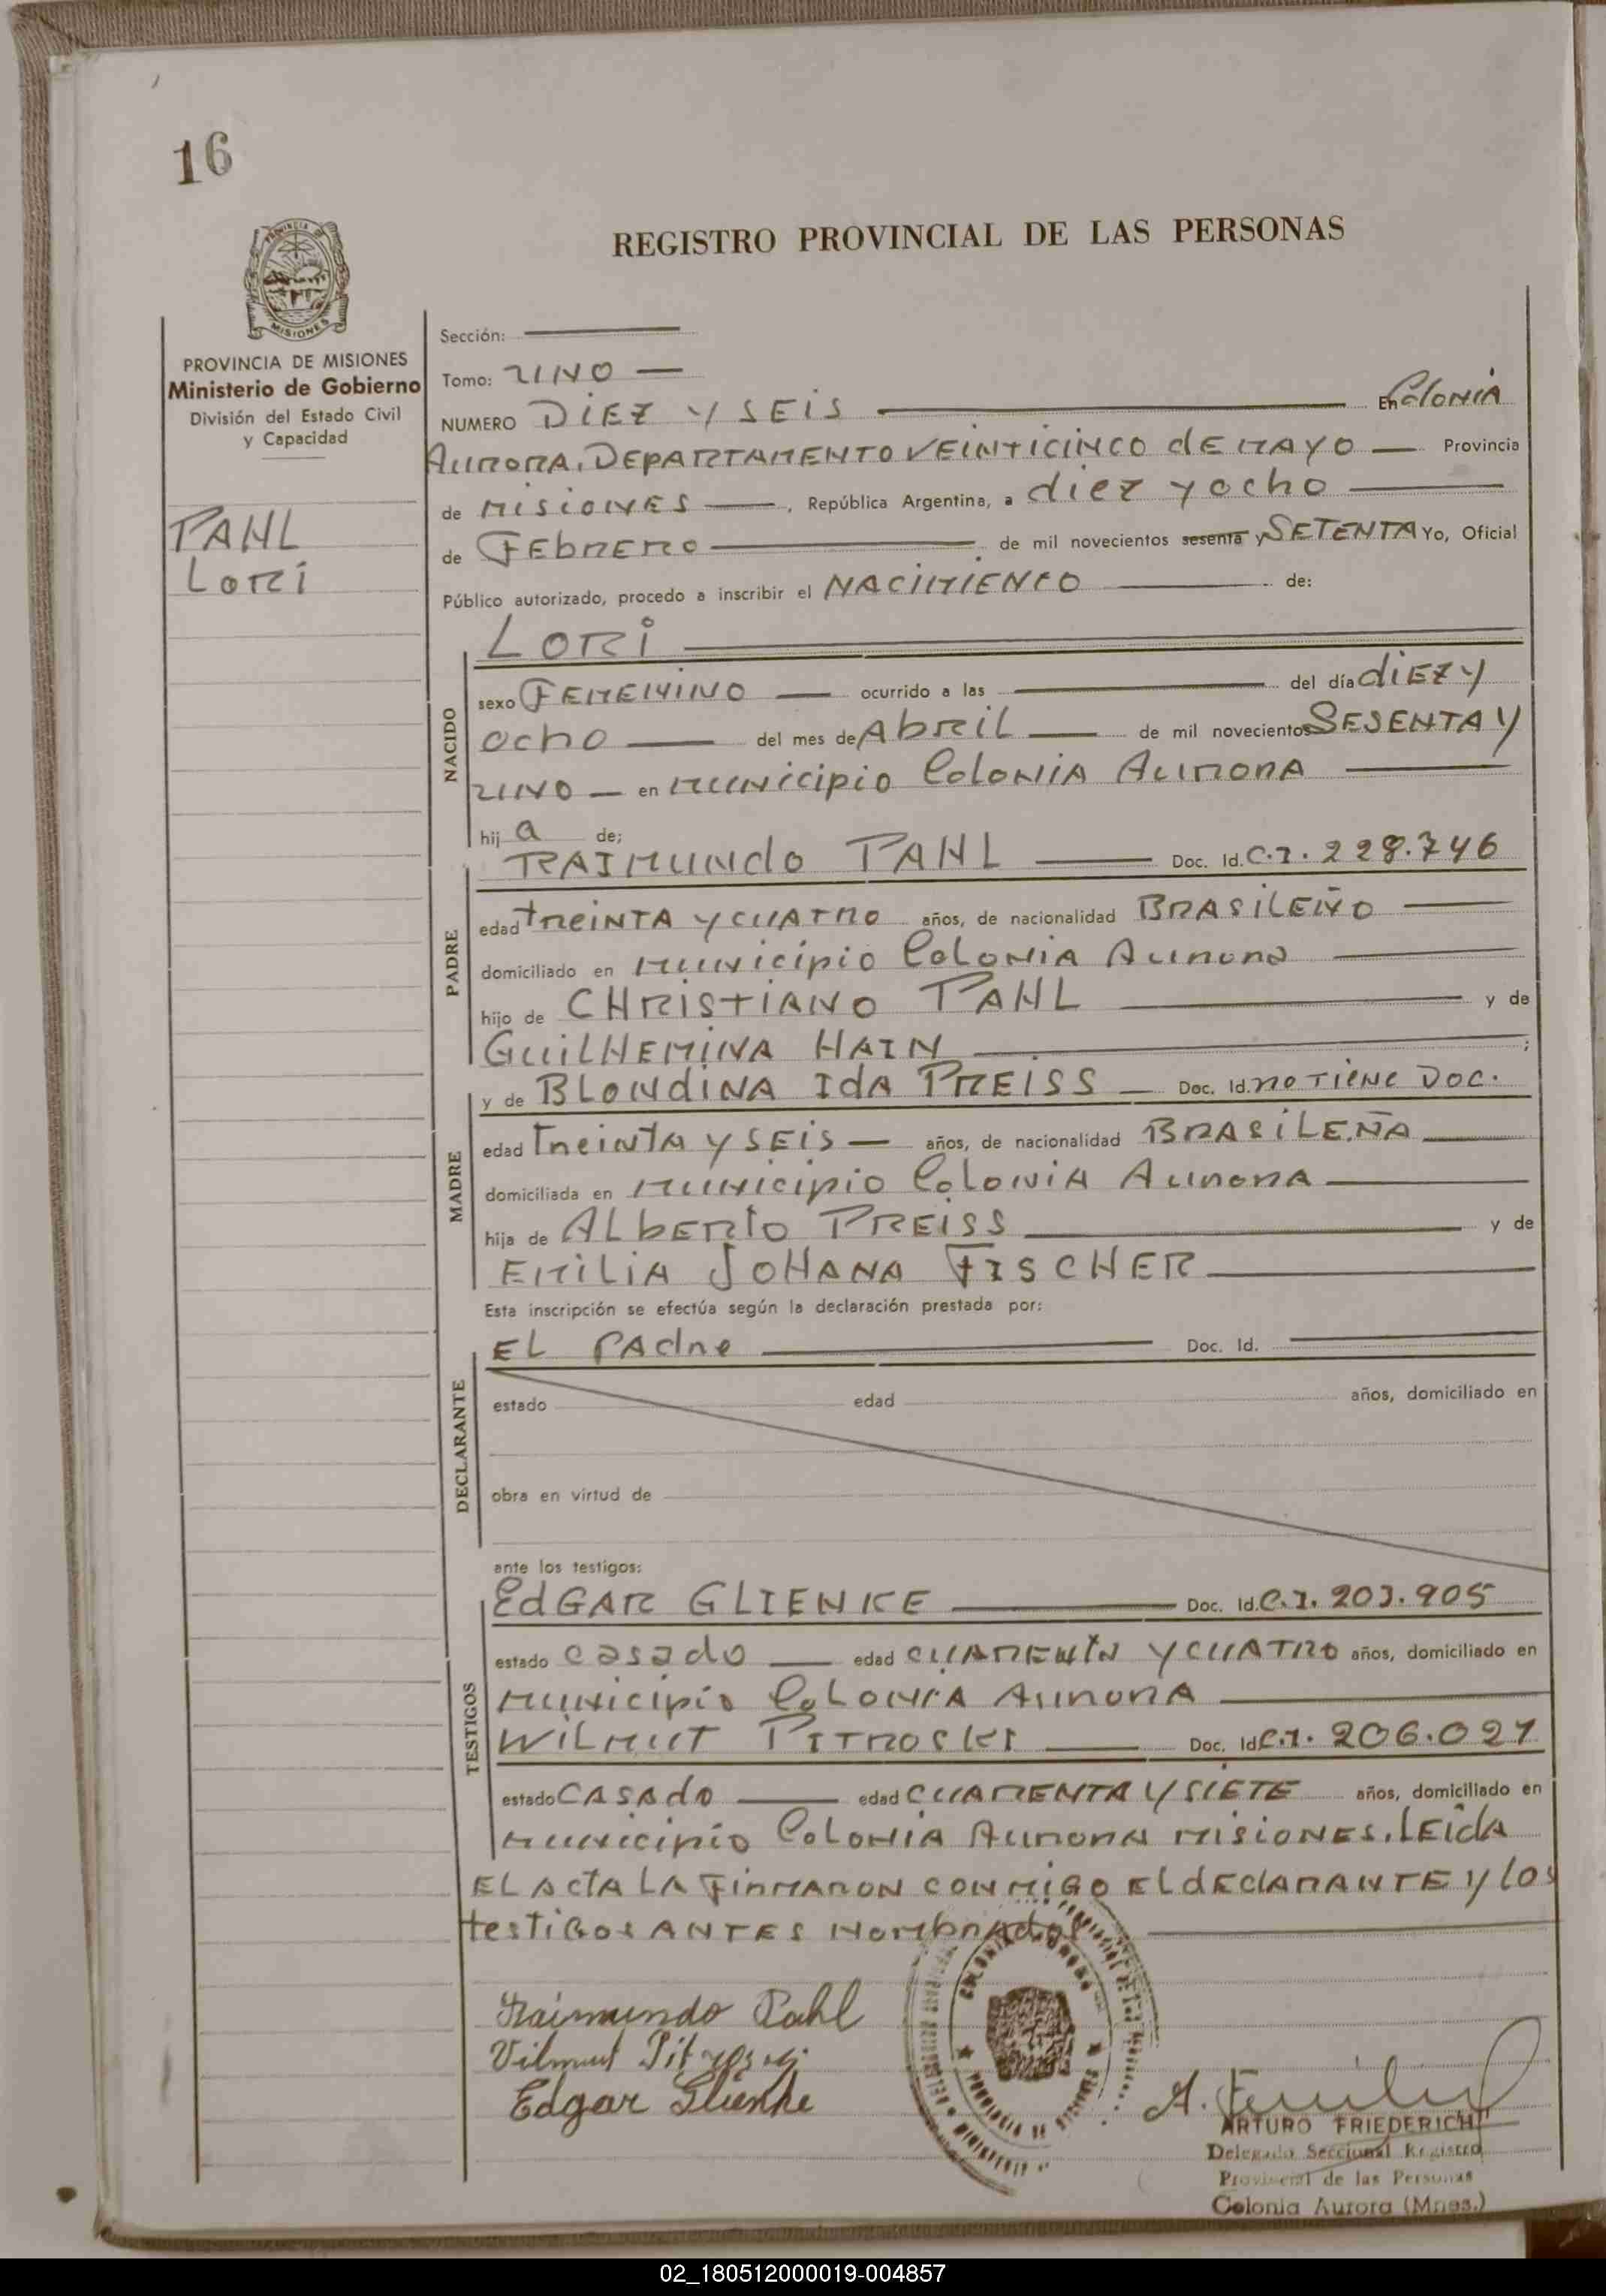 16
REGISTRO PROVINCIAL DE LAS PERSONAS
PROVINCIA DE
MISIONES
PROVINCIA DE MISIONES
Ministerio de Gobierno
División del Estado Civil
y Capacidad
PAHL
LORI
Sección:
Tomo: UNO
NUMERO DIEZ Y SEIS En COLONIA
AURORA, DEPARTAMENTO VEINTICINCO dE MAYO Provincia
de MISIONES, República Argentina, a diez y ocho
de FEbRERO de mil novecientos sesenta y SETENTA Yo, Oficial
Público autorizado, procedo a inscribir el NACIMIENTO de:
LORI
NACIDO
sexo FEMENINO ocurrido a las del día diEZ y
ocho del mes de AbRIL de mil novecientos SESENTA Y
UNO en MUNICIPIO COLONIA AURORA
hij a de;
PADRE
RAIMUNdO PAHL Doc. Id. C.I. 228.746
edad tREINTA Y CUATRO años, de nacionalidad BRASILEÑO
domiciliado en MUNICIPIO COLONIA AURORA
hijo de CHRISTIANO PAHL y de
GUILHEMINA HAIN ;
MADRE
y de BLONdINA IdA PREISS Doc. Id. NO TIENE DOC.
edad TREINTA Y SEIS años, de nacionalidad BRASILEÑA
domiciliada en MUNICIPIO COLONIA AURORA
hija de ALbERTO PREISS y de
EMILIA JOHANA FISCHER
Esta inscripción se efectúa según la declaración prestada por:
DECLARANTE
EL PAdRE Doc. Id.
estado edad años, domiciliado en
obra en virtud de
ante los testigos:
TESTIGOS
EdGAR GLIENKE Doc. Id. C.I. 203.905
estado casado edad CUARENTA Y CUATRO años, domiciliado en
MUNICIPIO COLONIA AURORA
WILMUT PITROSKI Doc. Id. C.I. 206.021
estado CASAdO edad CUARENTA Y SIETE años, domiciliado en
MUNICIPIO COLONIA AURORA MISIONES. LEIdA
EL ACTA LA FIRMARON CONMIGO EL dECLARANTE Y LOS
testigos ANTES NOMbRAdOS
Raimundo Pahl
Vilmut
Edgar Glienke
COLONIA AURORA
PROVINCIA DE MISIONES
ARTURO FRIEDERICH
Delegado Seccional Registro
Provincial de las Personas
Colonia Aurora (Mnes.)
02_180512000019-004857